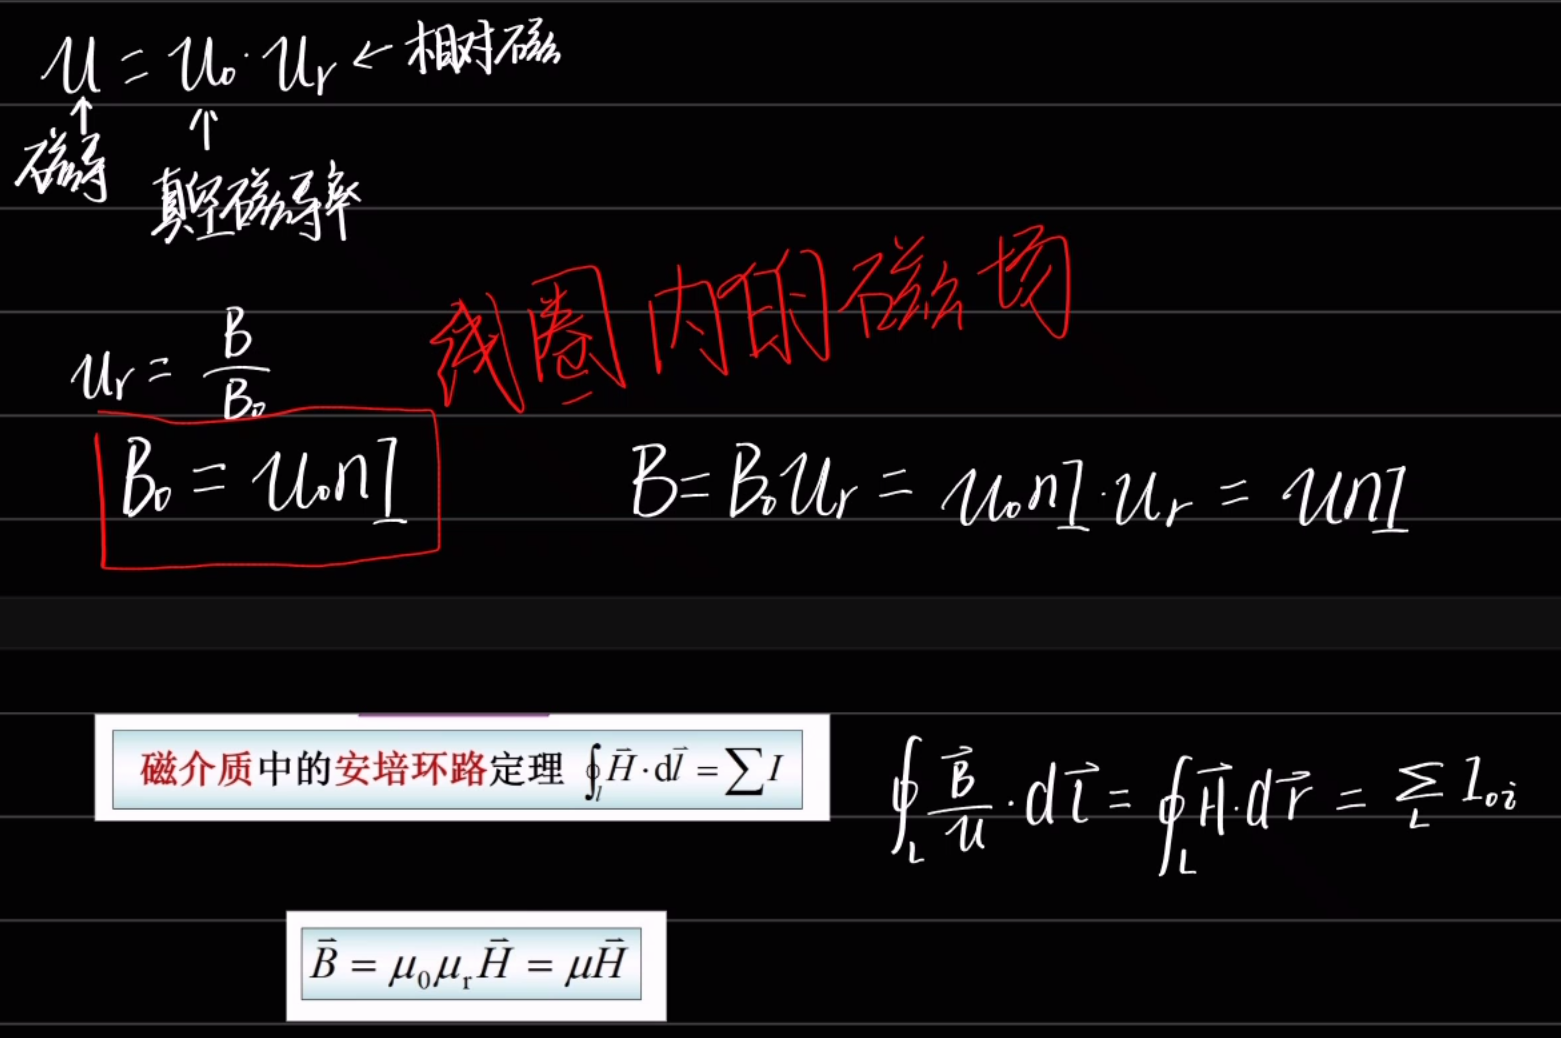 u = u₀·uᵣ ← 相对磁
↑ ↑
磁导 真空磁导率
线圈内的磁场
uᵣ = B/B₀
B₀ = u₀nI
B = B₀uᵣ = u₀nI·uᵣ = unI
磁介质中的安培环路定理 ∮ₗ H⃗·dl⃗ = ∑I
∮_L B⃗/u · dl⃗ = ∮_L H⃗·dr⃗ = ∑_L I₀ᵢ
B⃗ = μ₀μᵣH⃗ = μH⃗